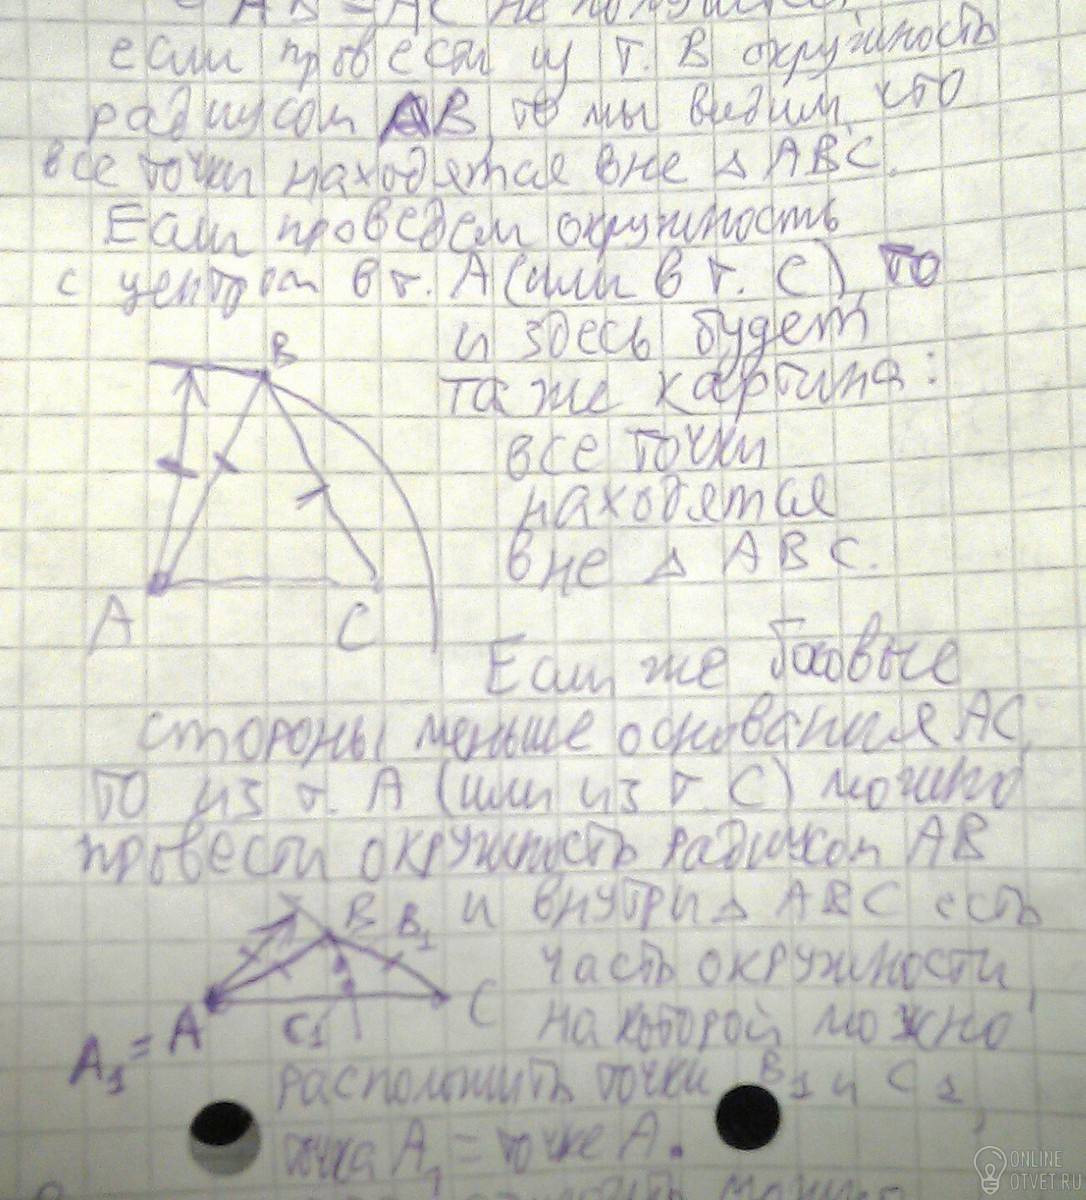 AB = AC не получается
если провести из т. В окружность
радиусом АВ, то мы видим, что
все точки находятся вне △ АВС.
Если проведем окружность
с центром в т. А (или в т. С), то
и здесь будет
та же картина:
все точки
находятся
вне △ АВС.
B
A
C
Если же боковые
стороны меньше основания АС,
то из т. А (или из т. С) можно
провести окружность радиусом АВ
и внутри △ АВС есть
часть окружности,
на которой можно
расположить точки В₁ и С₁,
точка А₁ = точке А.
B B₁
A₁ = A
C₁
C
ONLINE
OTVET.RU